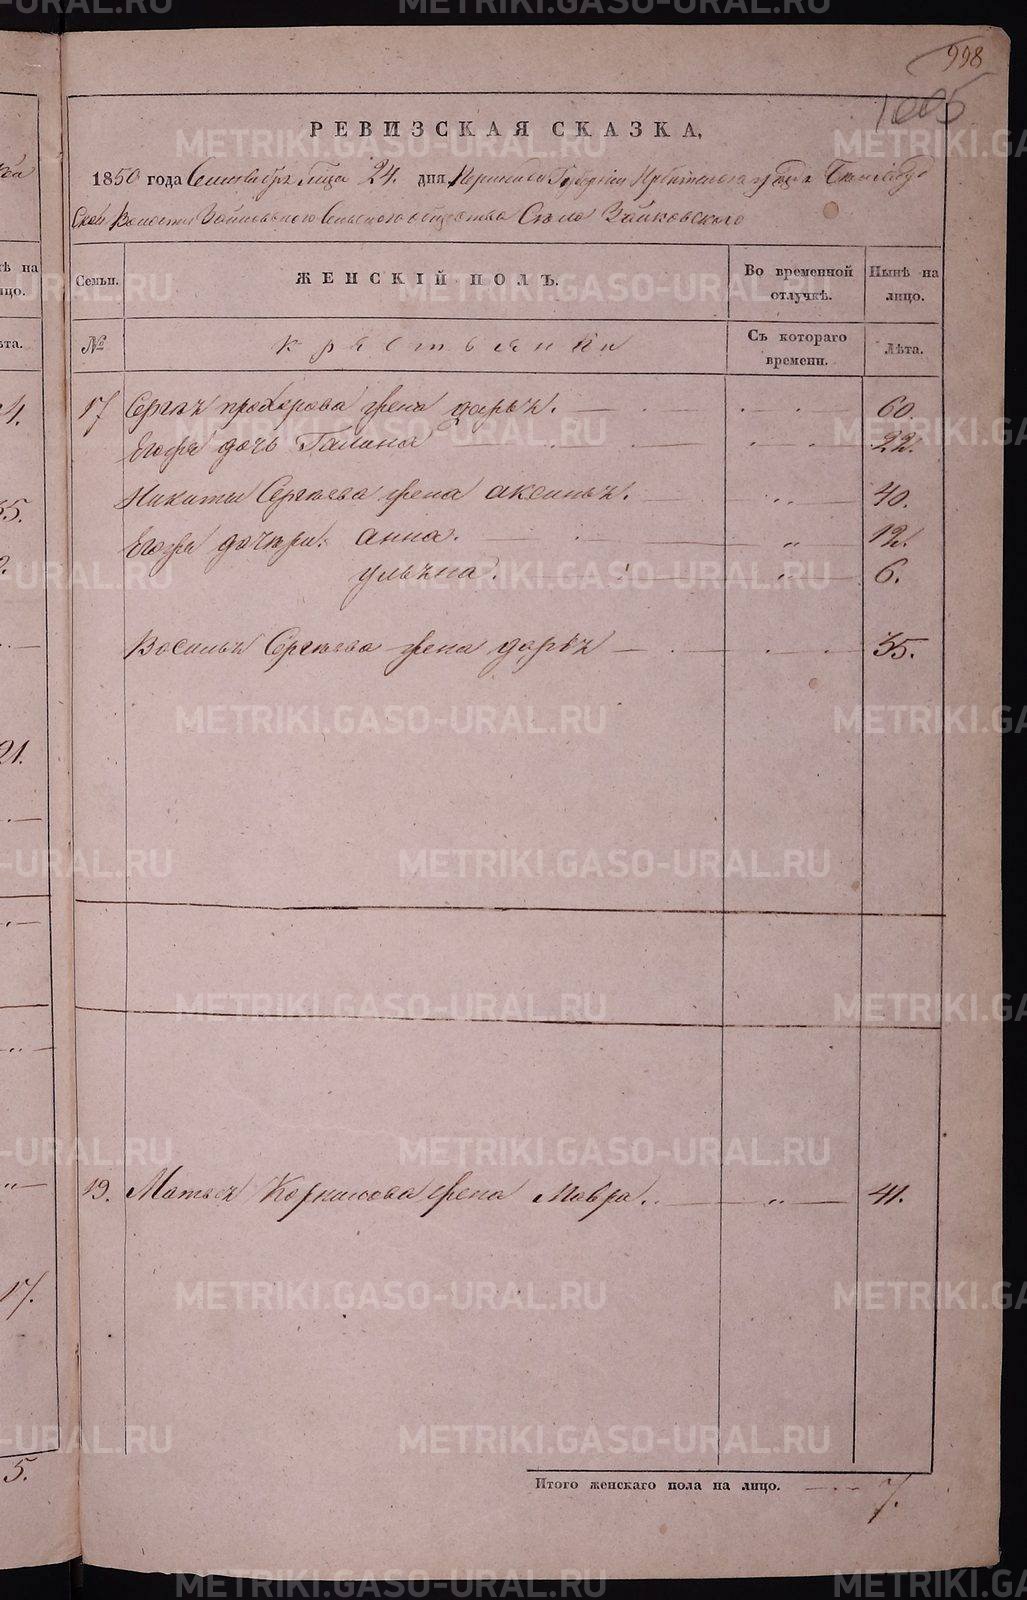 998
1005
РЕВИЗСКАЯ СКАЗКА,
1850 года Сентября м-ца 24. дня Пермской Губернiи Ирбитскаго уѣзда
ской Волости Зайковскаго Сельскаго общества Село Зайковскаго
Семьи. ЖЕНСКІЙ ПОЛЪ. Во временной отлучкѣ. Нынѣ на лицо.
№ крестьянки Съ котораго времени. Лѣта.
17 Сергѣя прохорова жена дарья. 60.
Егоже дочь Галина 22.
Никиты Сергѣева жена аксинья. 40.
Егоже дочери: анна. " 12.
ульяна. " 6.
Василья Сергѣева жена дарья 35.
19. Матвея Корнилова жена Мавра. " 41.
Итого женскаго пола на лицо. 7.
4.
35.
21.
17.
5.
METRIKI.GASO-URAL.RU